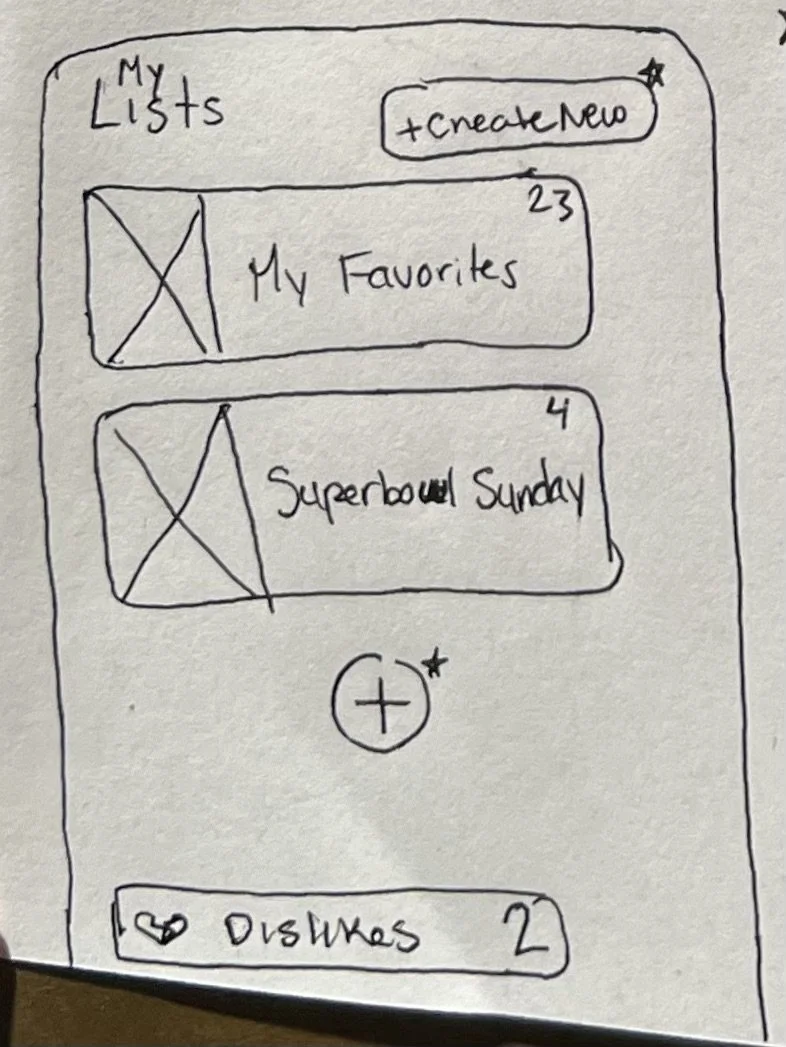 My
Lists
+Create New
23
My Favorites
4
Superbowl Sunday
+
Dislikes 2